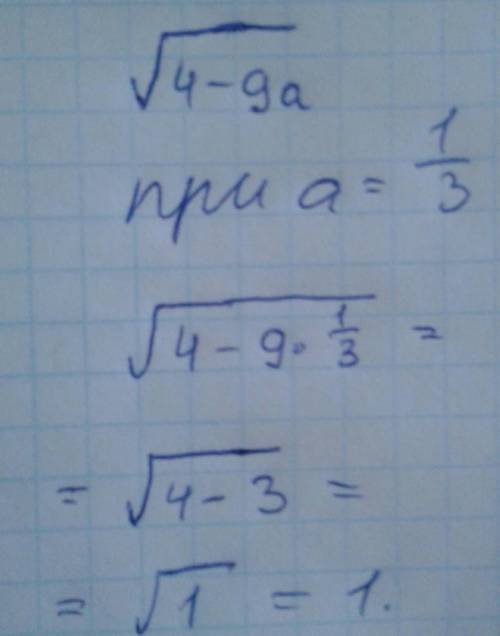 √4-9a
при a = 1/3
√4 - 9 · 1/3 =
= √4 - 3 =
= √1 = 1.